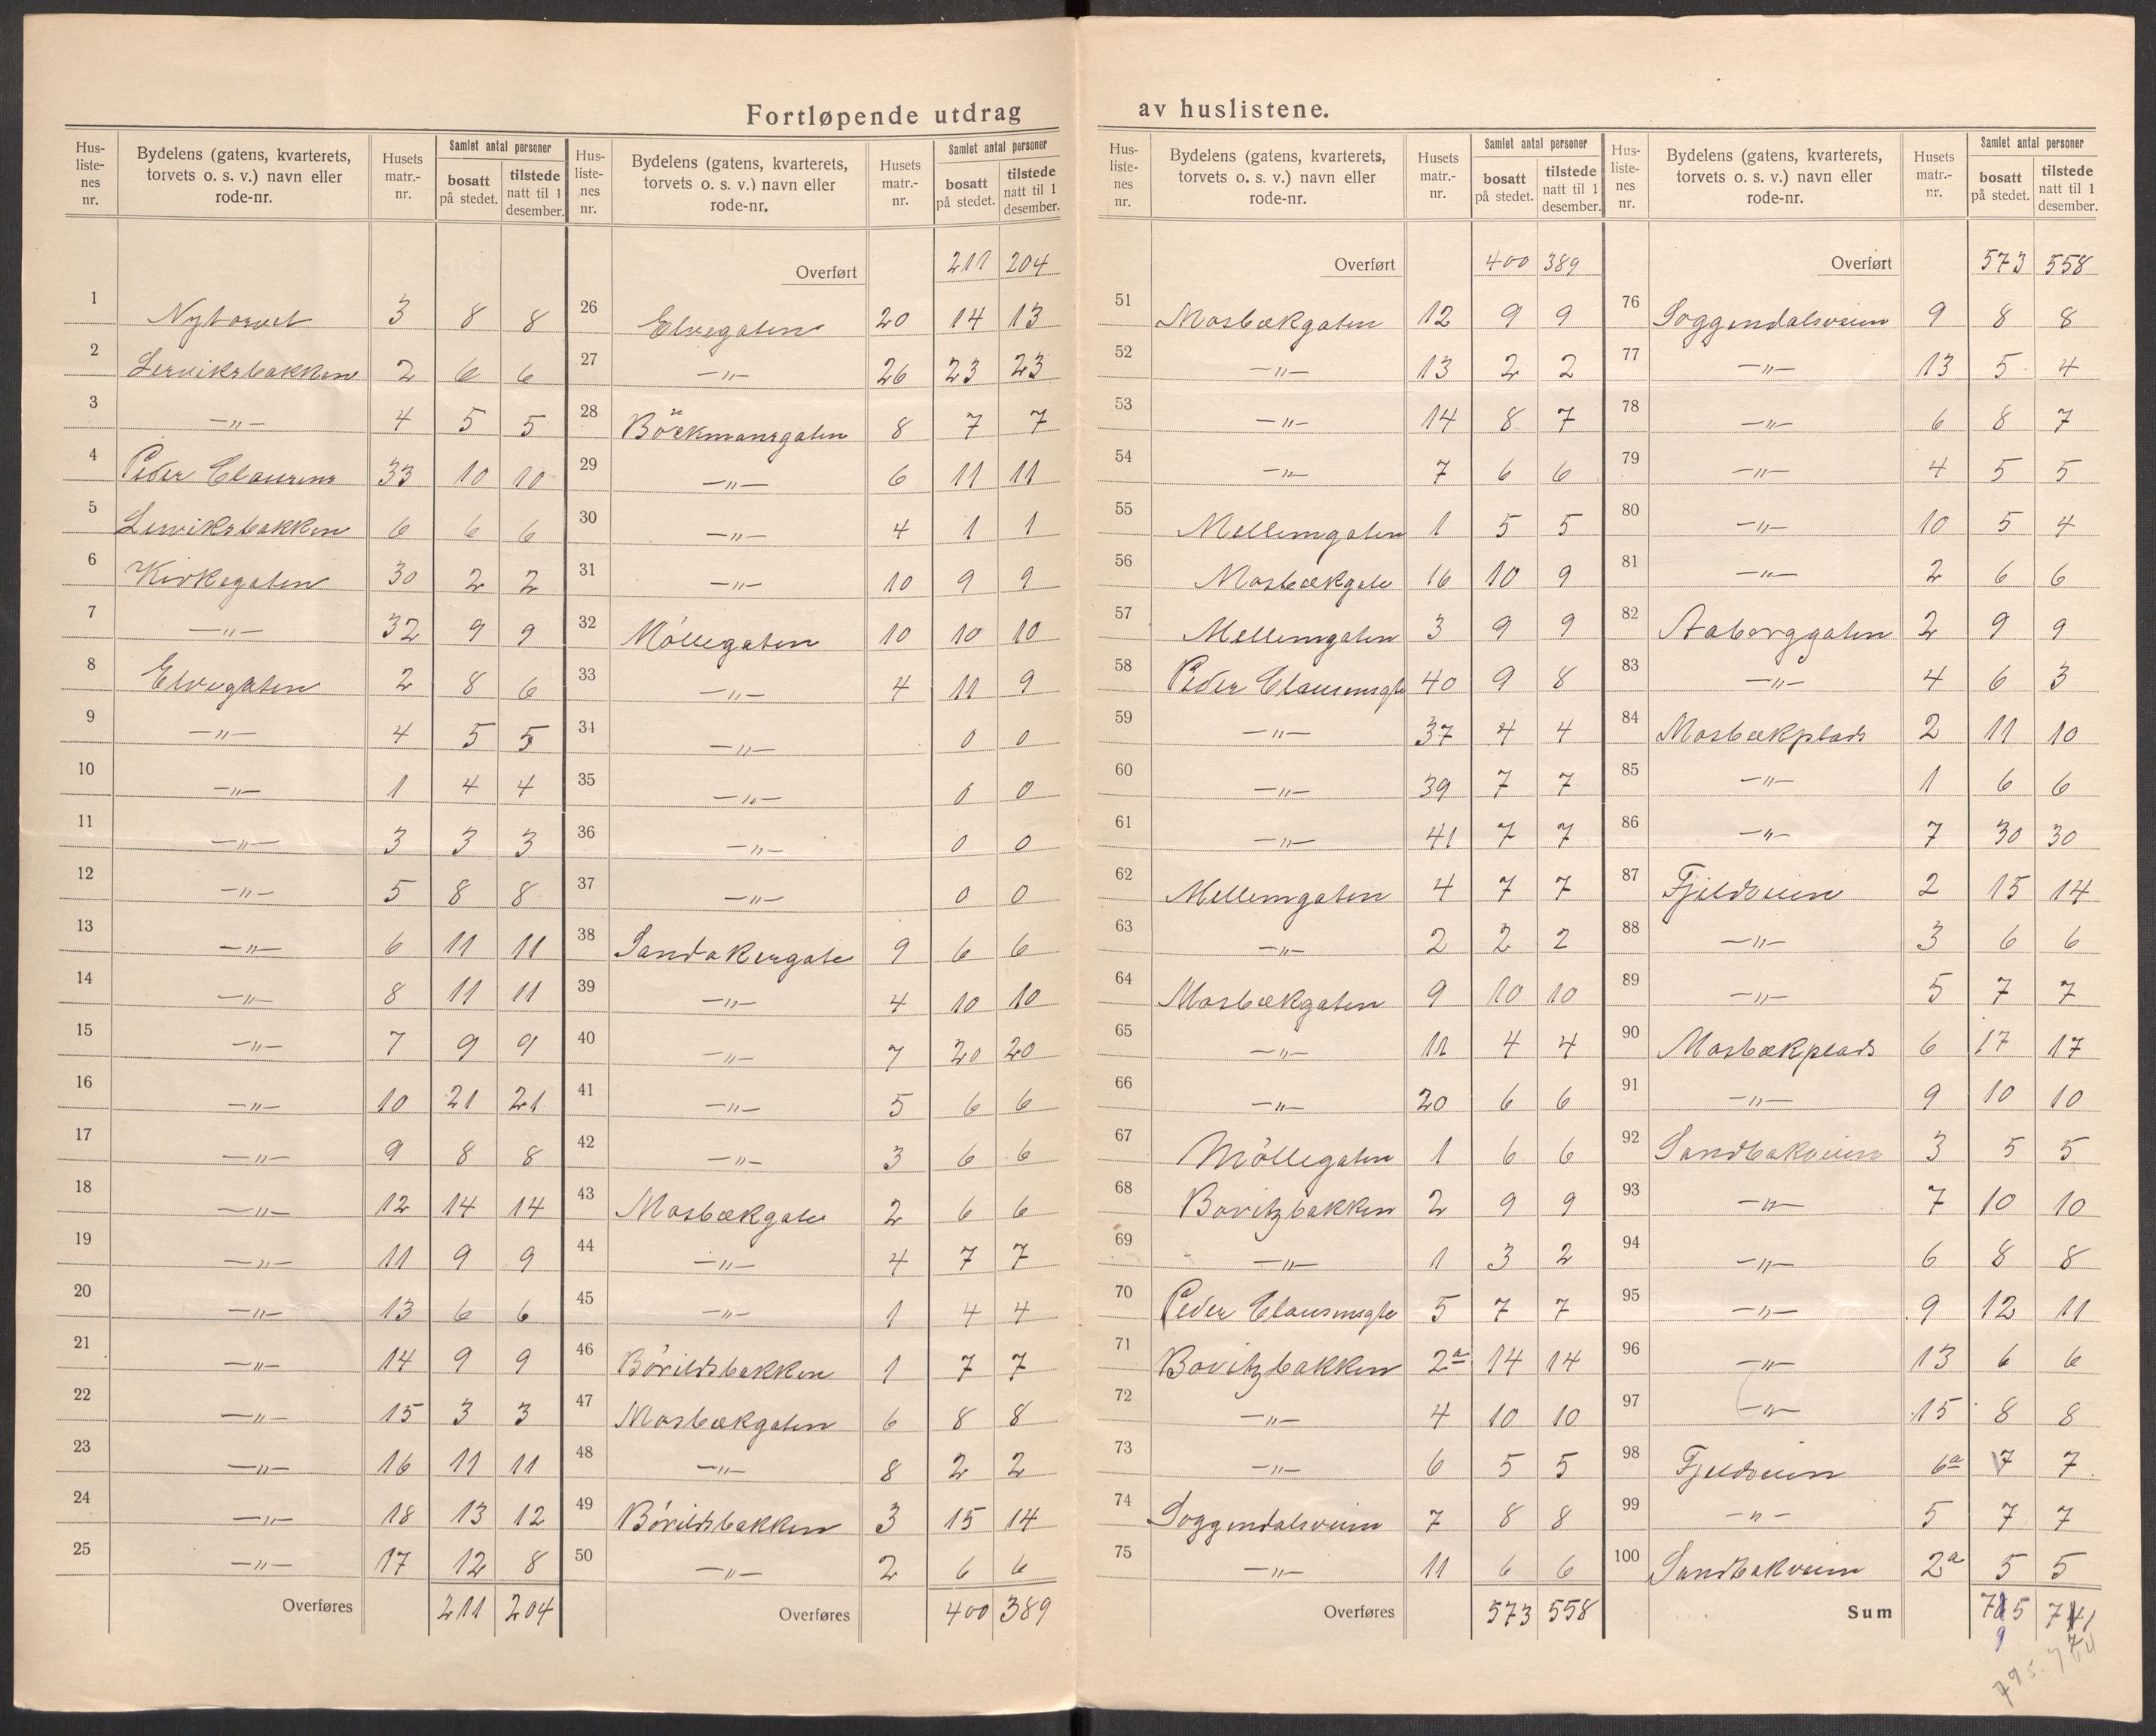 Fortløpende utdrag av huslistene.
Hus-liste-nes nr. | Bydelens (gatens, kvarterets, torvets o. s. v.) navn eller rode-nr. | Husets matr.-nr. | Samlet antal personer bosatt på stedet. | tilstede natt til 1 desember.
1 Nytorvet 3 8 8
2 Lerviksbakken 2 6 6
3 —"— 4 5 5
4 Peder Clausens 33 10 10
5 Lerviksbakken 6 6 6
6 Kirkegaten 30 2 2
7 —"— 32 9 9
8 Elvegaten 2 8 6
9 —"— 4 5 5
10 —"— 1 4 4
11 —"— 3 3 3
12 —"— 5 8 8
13 —"— 6 11 11
14 —"— 8 11 11
15 —"— 7 9 9
16 —"— 10 21 21
17 —"— 9 8 8
18 —"— 12 14 14
19 —"— 11 9 9
20 —"— 13 6 6
21 —"— 14 9 9
22 —"— 15 3 3
23 —"— 16 11 11
24 —"— 18 13 12
25 —"— 17 12 8
Overføres 211 204
Hus-liste-nes nr. | Bydelens (gatens, kvarterets, torvets o. s. v.) navn eller rode-nr. | Husets matr.-nr. | Samlet antal personer bosatt på stedet. | tilstede natt til 1 desember.
Overført 211 204
26 Elvegaten 20 14 13
27 —"— 26 23 23
28 Böckmansgaten 8 7 7
29 —"— 6 11 11
30 —"— 4 1 1
31 —"— 10 9 9
32 Möllegaten 10 10 10
33 —"— 4 11 9
34 —"— 0 0
35 —"— 0 0
36 —"— 0 0
37 —"— 0 0
38 Sandakergate 9 6 6
39 —"— 4 10 10
40 —"— 7 20 20
41 —"— 5 6 6
42 —"— 3 6 6
43 Mosbækgate 2 6 6
44 —"— 4 7 7
45 —"— 1 4 4
46 Börildsbakken 1 7 7
47 Mosbækgaten 6 8 8
48 —"— 8 2 2
49 Börildsbakken 3 15 14
50 —"— 2 6 6
Overføres 400 389
Hus-liste-nes nr. | Bydelens (gatens, kvarterets, torvets o. s. v.) navn eller rode-nr. | Husets matr.-nr. | Samlet antal personer bosatt på stedet. | tilstede natt til 1 desember.
Overført 400 389
51 Mosbækgaten 12 9 9
52 —"— 13 2 2
53 —"— 14 8 7
54 —"— 7 6 6
55 Mellemgaten 1 5 5
56 Mosbækgate 16 10 9
57 Mellemgaten 3 9 9
58 Peder Clausensgt 40 9 8
59 —"— 37 4 4
60 —"— 39 7 7
61 —"— 41 7 7
62 Mellemgaten 4 7 7
63 —"— 2 2 2
64 Mosbækgaten 9 10 10
65 —"— 11 4 4
66 —"— 20 6 6
67 Möllegaten 1 6 6
68 Bovitzbakken 2 9 9
69 —"— 1 3 2
70 Peder Clausensgte 5 7 7
71 Bovitzbakken 2a 14 14
72 —"— 4 10 10
73 —"— 6 5 5
74 Soggendalsveien 7 8 8
75 —"— 11 6 6
Overføres 573 558
Hus-liste-nes nr. | Bydelens (gatens, kvarterets, torvets o. s. v.) navn eller rode-nr. | Husets matr.-nr. | Samlet antal personer bosatt på stedet. | tilstede natt til 1 desember.
Overført 573 558
76 Soggendalsveien 9 8 8
77 —"— 13 5 4
78 —"— 6 8 7
79 —"— 4 5 5
80 —"— 10 5 4
81 —"— 2 6 6
82 Aaborggaten 2 9 9
83 —"— 4 6 3
84 Mosbækplads 2 11 10
85 —"— 1 6 6
86 —"— 7 30 30
87 Fjeldveien 2 15 14
88 —"— 3 6 6
89 —"— 5 7 7
90 Mosbækplads 6 17 17
91 —"— 9 10 10
92 Sandbakveien 3 5 5
93 —"— 7 10 10
94 —"— 6 8 8
95 —"— 9 12 11
96 —"— 13 6 6
97 —"— 15 8 8
98 Fjeldveien 6a 7 7
99 —"— 5 7 7
100 Sandbakveien 2a 5 5
Sum
9 7
795.